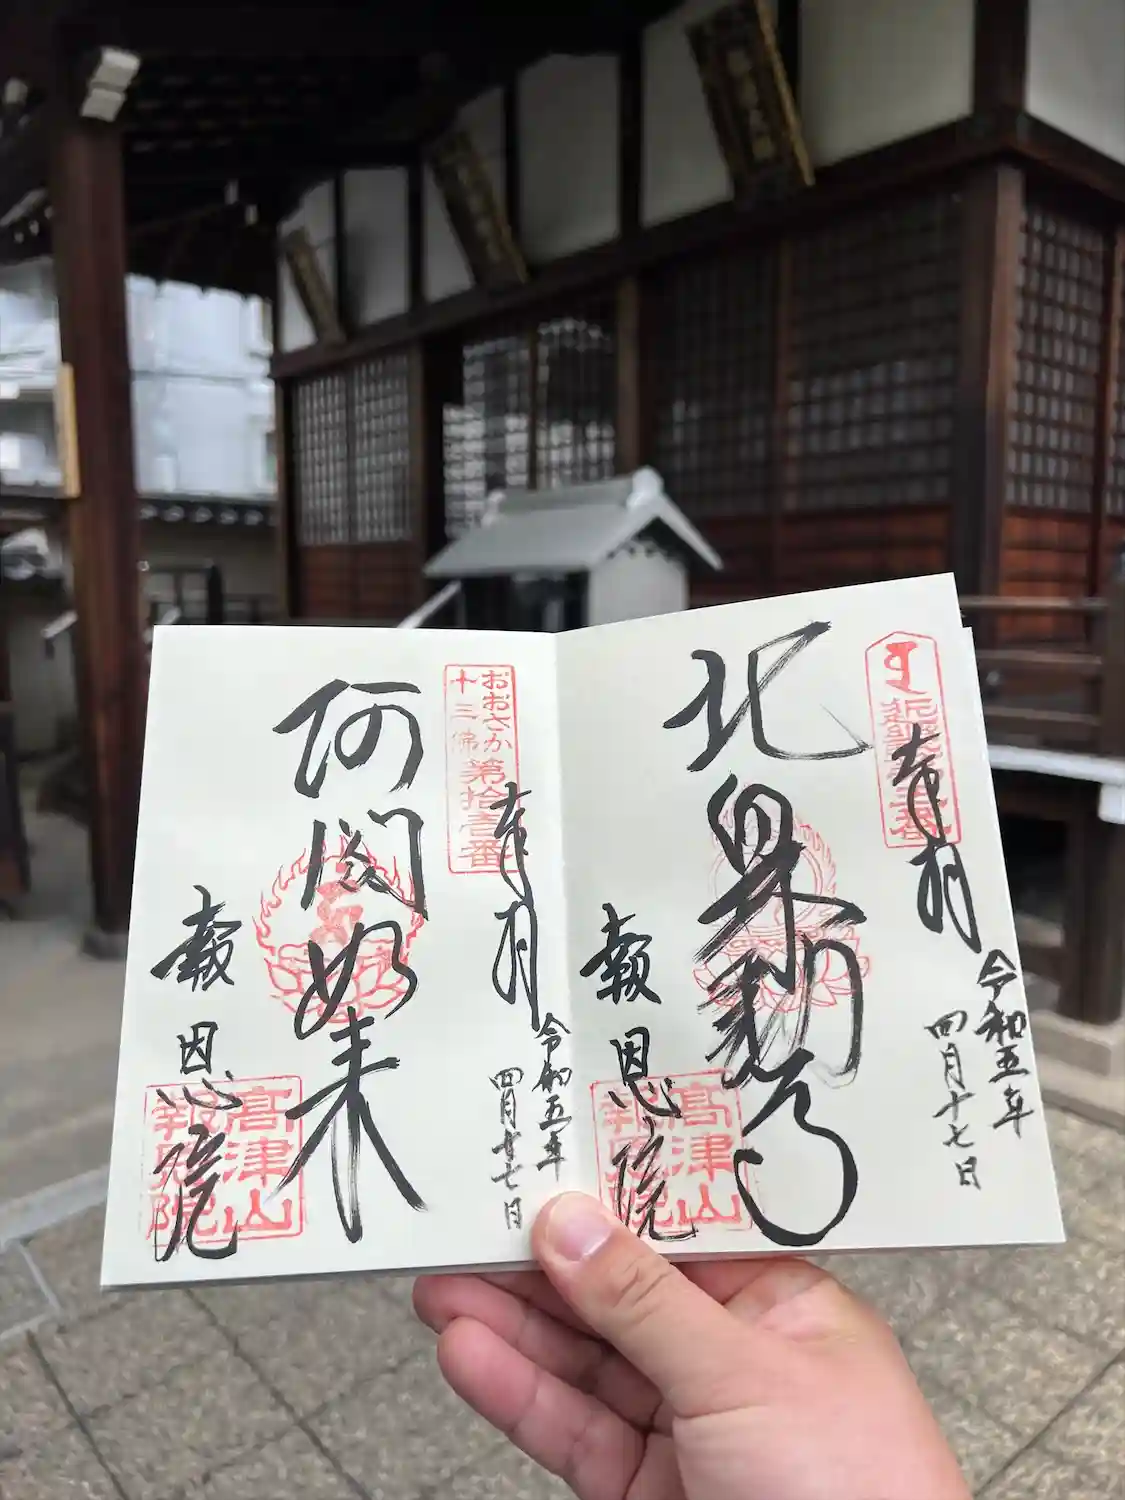 奉拝
令和五年
四月十七日
北向不動尊
報恩院
高津山
報恩院
おおさか
十三佛
第拾壱番
奉拝
令和五年
四月廿七日
阿閦如来
報恩院
高津山
報恩院